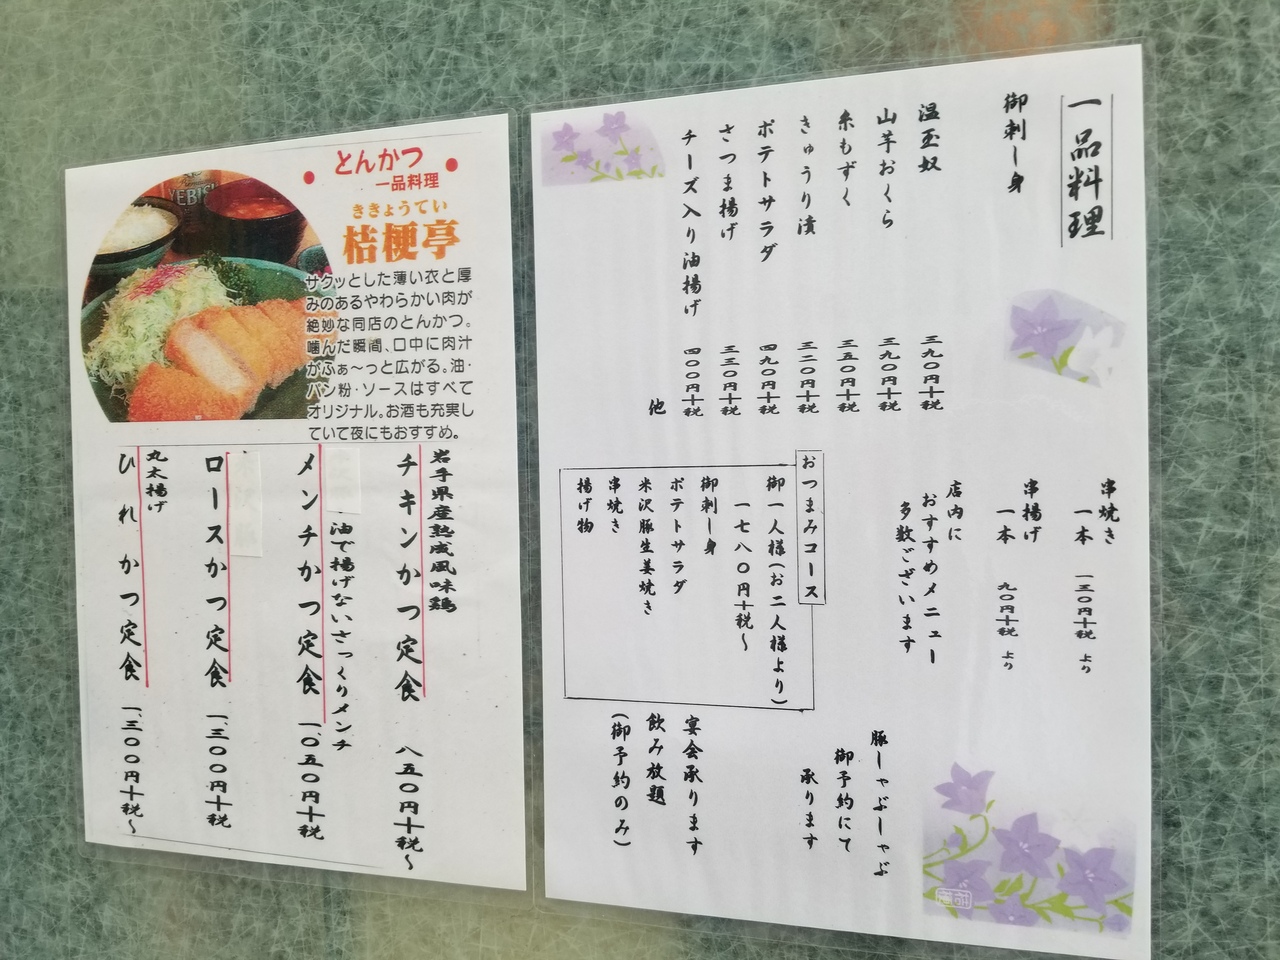 とんかつ
一品料理
ききょうてい
桔梗亭
YEBIS
サクッとした薄い衣と厚
みのあるやわらかい肉が
絶妙な同店のとんかつ。
噛んだ瞬間、口中に肉汁
がふぁ〜っと広がる。油・
パン粉・ソースはすべて
オリジナル。お酒も充実し
ていて夜にもおすすめ。
岩手県産熟成風味鶏
チキンかつ定食 八五〇円十税〜
油で揚げないさっくりメンチ
メンチかつ定食 一、〇五〇円十税
ロースかつ定食 一、三〇〇円十税
丸太揚げ
ひれかつ定食 一、三〇〇円十税〜
一品料理
御刺し身
温玉奴 三九〇円十税
山芋おくら 三九〇円十税
糸もずく 三五〇円十税
きゅうり漬 三二〇円十税
ポテトサラダ 四九〇円十税
さつま揚げ 三三〇円十税
チーズ入り油揚げ 四〇〇円十税
他
串焼き
一本 一三〇円十税 より
串揚げ
一本 九〇円十税 より
店内に
おすすめメニュー
多数ございます
おつまみコース
御一人様(お二人様より)
一七八〇円十税〜
御刺し身
ポテトサラダ
米沢豚生姜焼き
串焼き
揚げ物
豚しゃぶしゃぶ
御予約にて
承ります
宴会承ります
飲み放題
(御予約のみ)